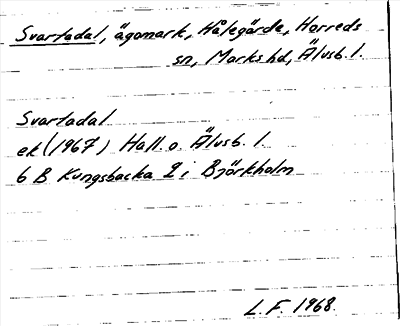 Svartadal, ägomark, Hålegärde, Horreds
sn, Marks hd, Älvsb. l.
Svartadal
ek (1967) Hall. o. Älvsb. l.
6 B Kungsbacka 2 i Björkholm
L.F. 1968.